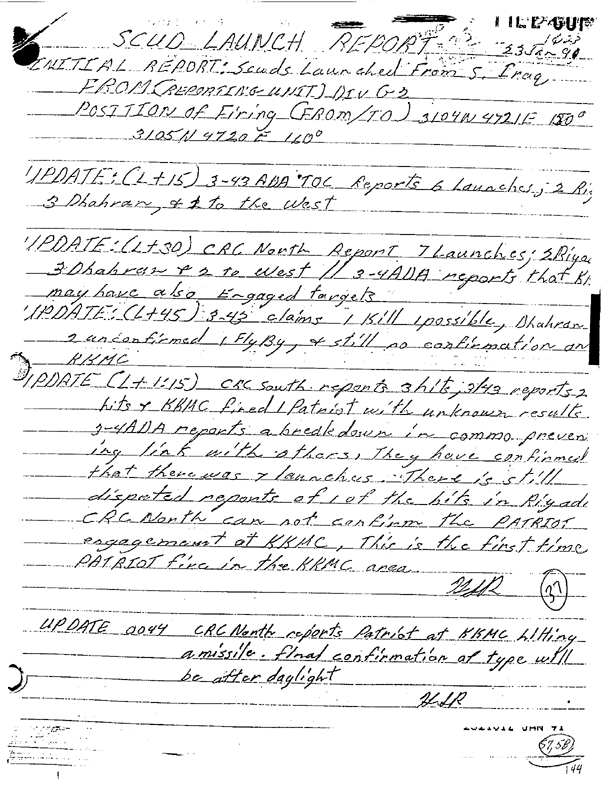 FILE COPY
SCUD LAUNCH REPORT
23 Jan 91
INITIAL REPORT: Scuds Launched From S. Iraq
FROM (REPORTING UNIT) DIV G-2
POSITION of Firing (FROM/TO) 3104N 4721E 180°
3105N 4720E 160°
UPDATE: (L+15) 3-43 ADA TOC Reports 6 Launches; 2 Riy
3 Dhahran, & 1 to the West
UPDATE: (L+30) CRC North Report 7 Launches; 2 Riyad
3 Dhahran & 2 to West // 3-4 ADA reports that KK
may have also Engaged targets
UPDATE: (L+45) 3-43 claims 1 Kill 1 possible, Dhahran
2 unconfirmed 1 Fly By, & still no confirmation on
KKMC
UPDATE (L+1:15) CRC South reports 3 hits, 3/43 reports 2
hits & KKMC fired 1 Patriot with unknown results.
3-4 ADA reports a breakdown in commo preven
ing link with others, They have confirmed
that there was 7 launches. There is still
disputed reports of 1 of the hits in Riyad
CRC North can not confirm the PATRIOT
engagement at KKMC, This is the first time
PATRIOT fire in the KKMC area
HLR
37
UPDATE 0044 CRC North reports Patriot at KKMC hitting
a missile. Final confirmation of type will
be after daylight
HLR
JAN 91
57,58
144